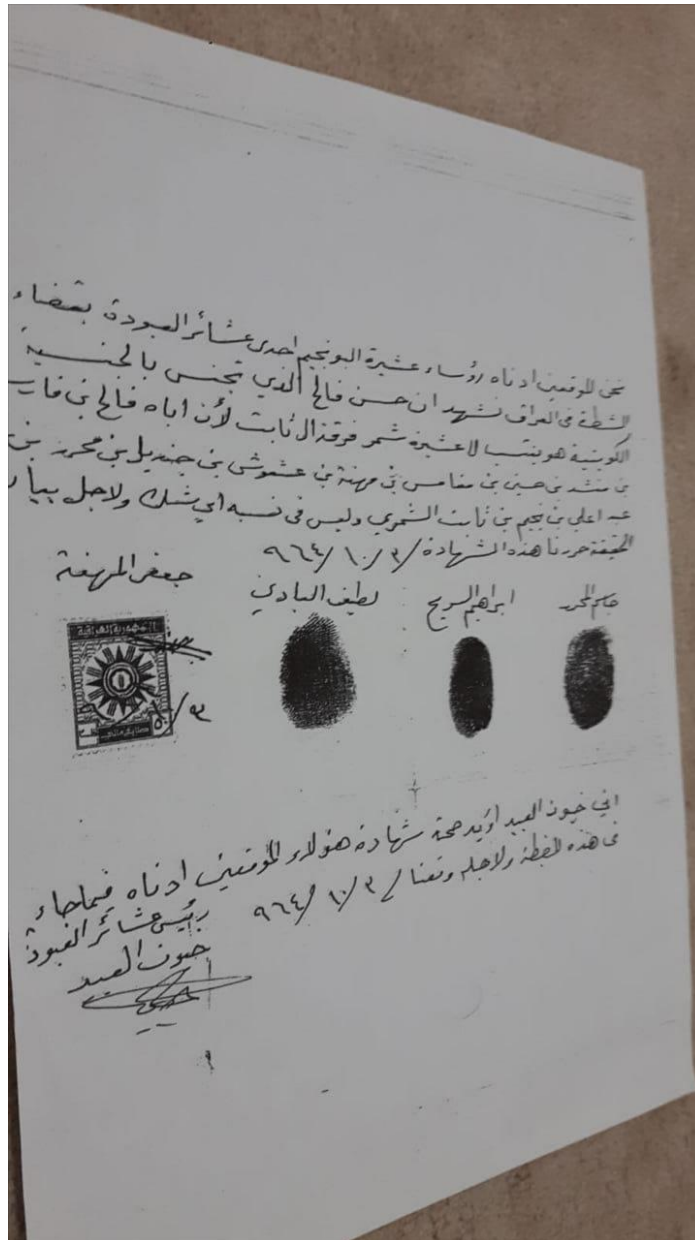 نحن الموقعين ادناه رؤساء عشيرة البونجيم احدى عشائر العبودة بقضاء
الشطرة في العراق نشهد ان حسن فالح الذي تجنس بالجنسية
الكويتية هو ينتسب لا عشيرة شمر فرقة ال ثابت لأن اباه فالح بن فارس
بن منشد بن حسين بن مغامس بن مهنة بن عشوش بن جنديل بن محرد بن
عبد اعلي بن نجيم بن ثابت الشمري وليس في نسبه اي شك ولاجل بيان
الحقيقة حررنا هذه الشهادة ٣/١٠/٩٦٤
جاسم المحرد ابراهيم السريح لطيف البادي جعفر المهفة
الجمهورية العراقية
٣/١٠
اني خيون العبيد أؤيد صحة شهادة هؤلاء الموقعين ادناه فيما جاء
في هذه المضبطة ولاجله وقعنا ٣/١٠/٩٦٤
رئيس عشائر العبودة
خيون العبيد